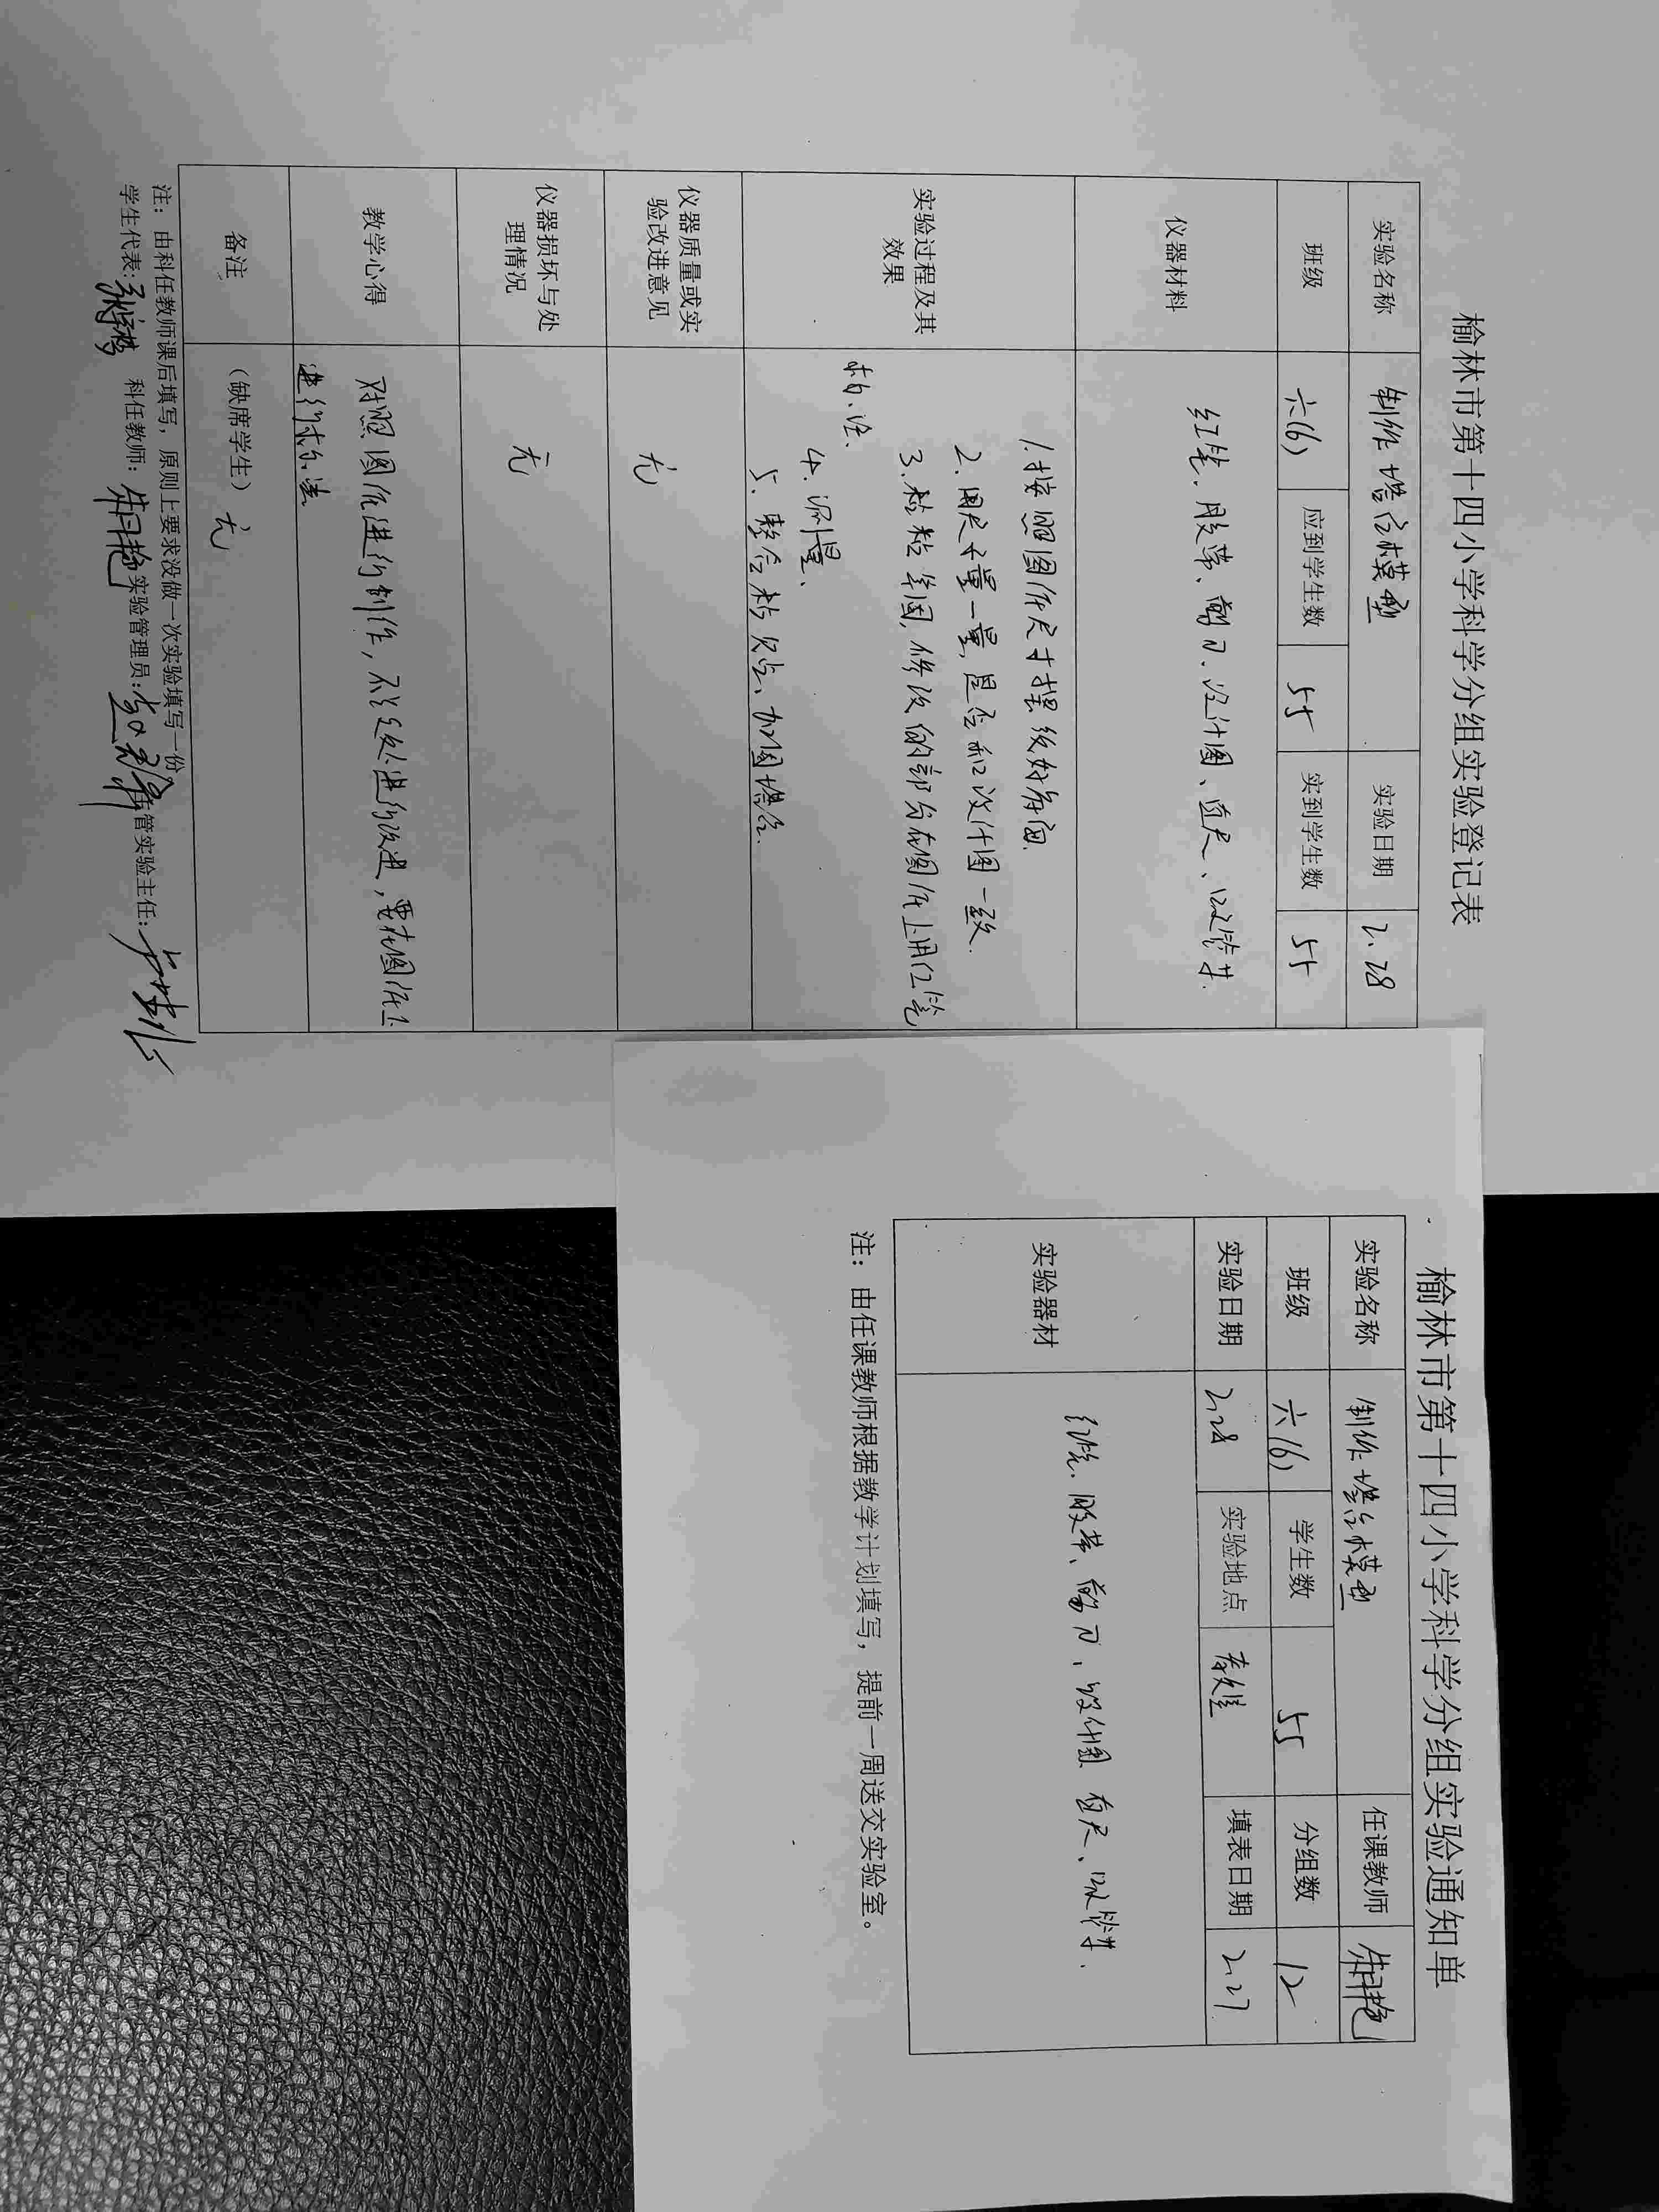 榆林市第十四小学科学分组实验登记表
实验名称 制作塔台模型 实验日期 2.28
班级 六(6) 应到学生数 55 实到学生数 55
仪器材料 红笔、胶带、剪刀、设计图、直尺、吸管等.
实验过程及其效果
1.按照图纸尺寸摆放好每间.
2.用尺子量一量,是否和设计图一致.
3.粘粘牢固,修改的部分在图纸上用红笔
标注.
4.测量、
5.整合粘贴、加固塔台.
仪器质量或实验改进意见 无
仪器损坏与处理情况 无
教学心得 对照图纸进行制作,不足之处进行改进,要在图纸上
进行标注
备注 (缺席学生) 无
注:由科任教师课后填写,原则上要求没做一次实验填写一份
学生代表: 科任教师: 实验管理员: 主管实验主任:
榆林市第十四小学科学分组实验通知单
实验名称 制作塔台模型 任课教师
班级 六(6) 学生数 55 分组数 12
实验日期 2.28 实验地点 教室 填表日期 2.27
实验器材 红笔、胶带、剪刀、设计图 直尺、吸管等.
注:由任课教师根据教学计划填写,提前一周送交实验室。